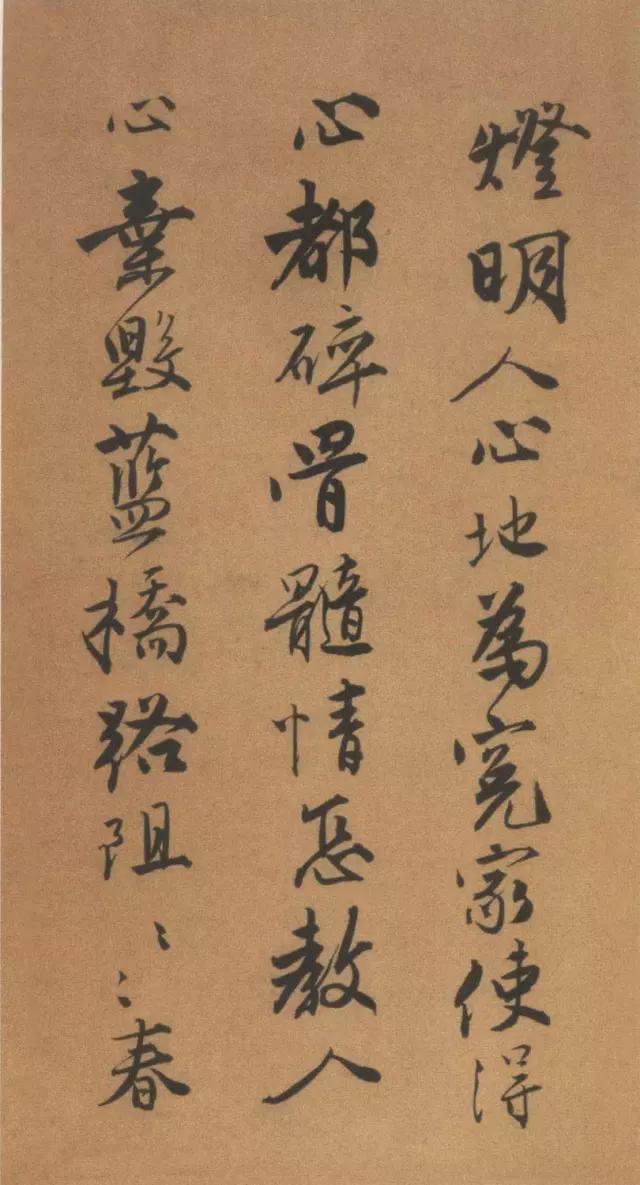 燈明人心地為寃家使得
心都碎骨髓情怎教人
心棄毀藍橋路阻〻〻春